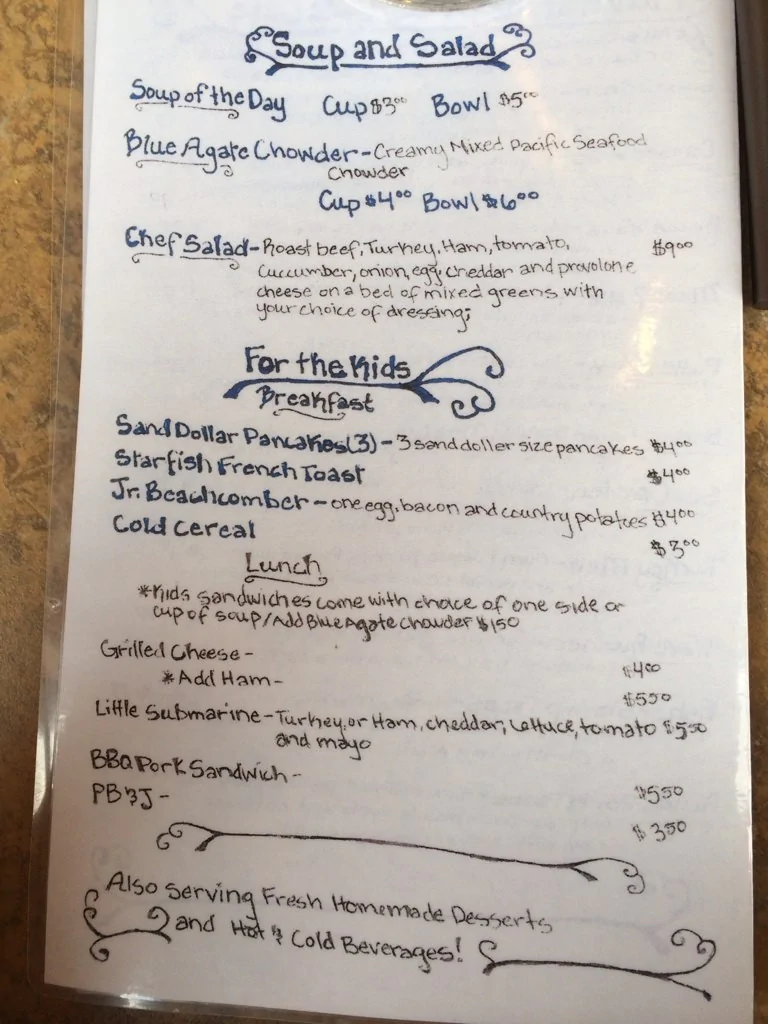 Soup and Salad
Soup of the Day Cup $3.00 Bowl $5.00
Blue Agate Chowder - Creamy Mixed Pacific Seafood
Chowder
Cup $4.00 Bowl $6.00
Chef Salad - Roast beef, Turkey, Ham, tomato, $9.00
cuccumber, onion, egg, cheddar and provolone
cheese on a bed of mixed greens with
your choice of dressing;
For the Kids
Breakfast
Sand Dollar Pancakes (3) - 3 sand doller size pancakes $4.00
Starfish French Toast $4.00
Jr. Beachcomber - one egg, bacon and country potatoes $4.00
Cold Cereal $3.00
Lunch
*Kids sandwiches come with choice of one side or
cup of soup/Add Blue Agate Chowder $1.50
Grilled Cheese - $4.00
*Add Ham - $5.50
Little Submarine - Turkey, or Ham, cheddar, Lettuce, tomato $5.50
and mayo
BBQ Pork Sandwich - $5.50
PB & J - $3.50
Also Serving Fresh Homemade Desserts
and Hot & Cold Beverages!